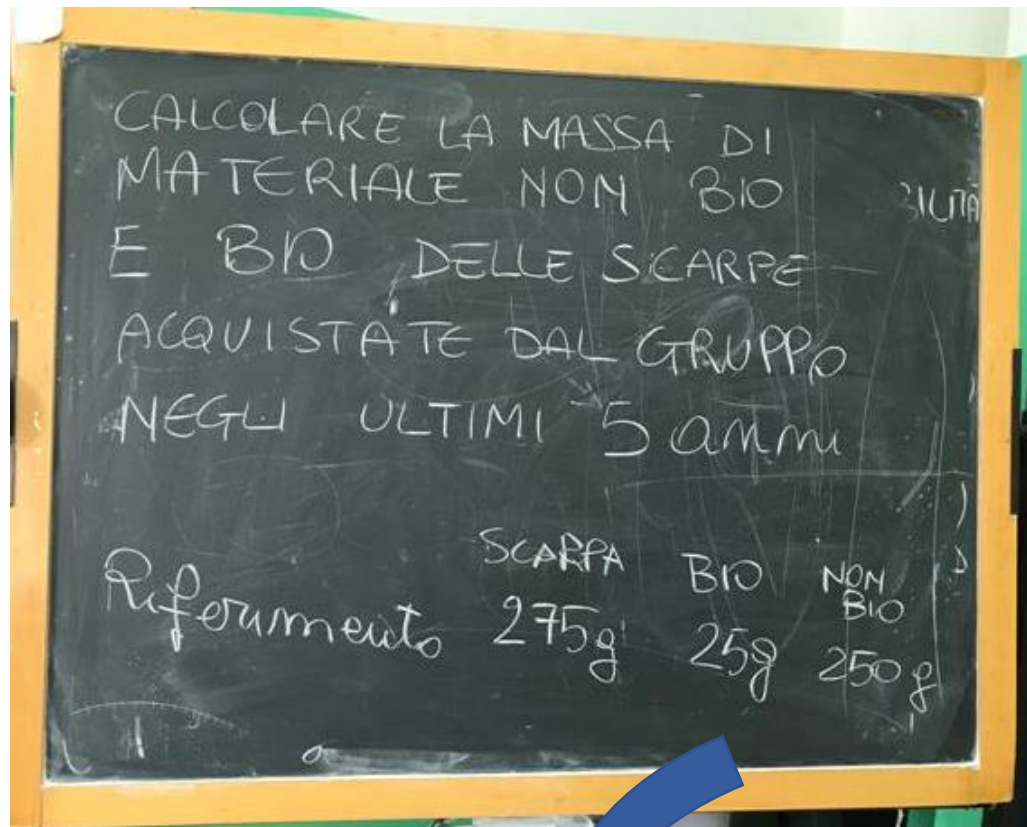 CALCOLARE LA MASSA DI
MATERIALE NON BIO
E BIO DELLE SCARPE
ACQUISTATE DAL GRUPPO
NEGLI ULTIMI 5 anni
SCARPA BIO NON BIO
Riferimento 275g 25g 250g